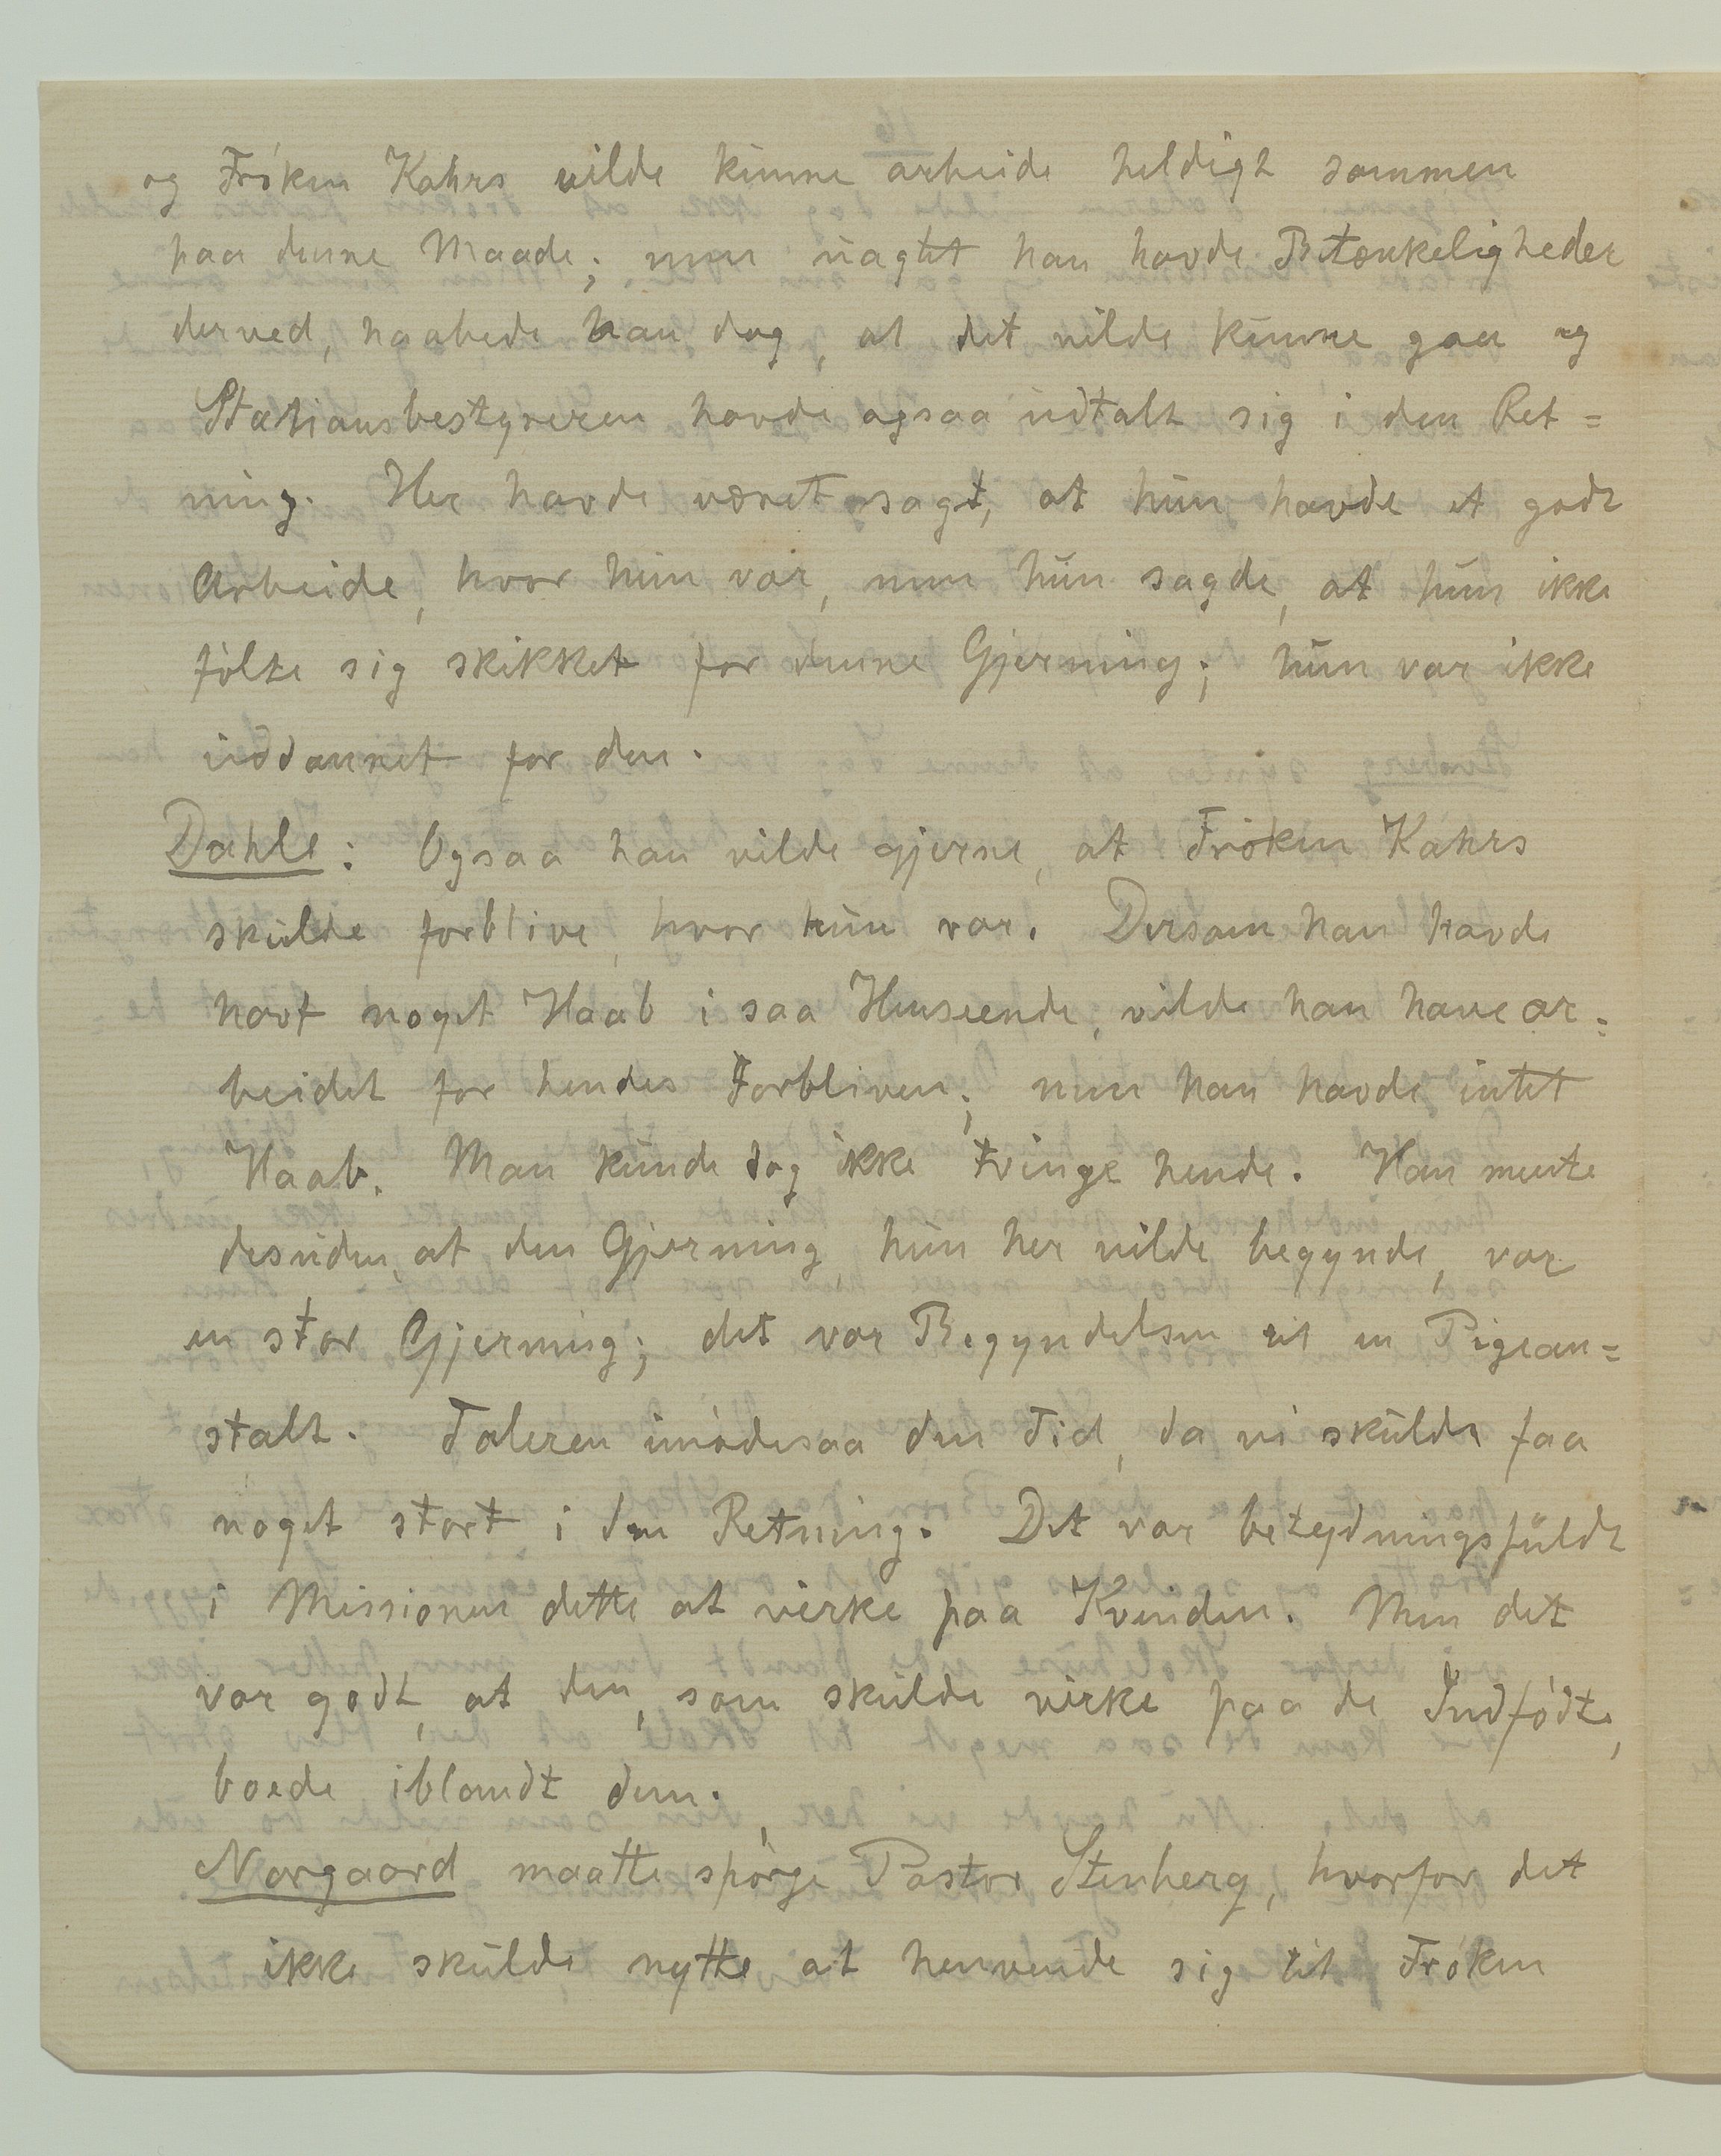 og Frøken Kahrs vilde kunne arbeide heldigt sammen
paa denne Maade; men uagtet han havde Betænkeligheder
derved, haabede han dog, at det vilde kunne gaa og
Stationsbestyreren havde ogsaa udtalt sig i den Ret=
ning. Her havde været sagt, at hun havde et godt
Arbeide, hvor hun var, men hun sagde, at hun ikke
følte sig skikket for denne Gjerning; hun var ikke
uddannet for den.
Dahle: Ogsaa han vilde gjerne, at Frøken Kahrs
skulde forblive, hvor hun var. Dersom han havde
havt noget Haab i saa Henseende, vilde han have ar=
beidet for hendes Forbliven; men han havde intet
Haab. Man kunde dog ikke tvinge hende. Han mente
desuden, at den Gjerning, hun her vilde begynde, var
en stor Gjerning; det var Begyndelsen til en Pigean=
stalt. Taleren imødesaa den Tid, da vi skulde faa
noget stort i den Retning. Det var betydningsfuldt
i Missionen dette at virke paa Kvinden. Men det
var godt, at den, som skulde virke paa de Indfødte,
boede iblandt dem.
Norgaard maatte spørge Pastor Stenberg, hvorfor det
ikke skulde nytte at henvende sig til Frøken